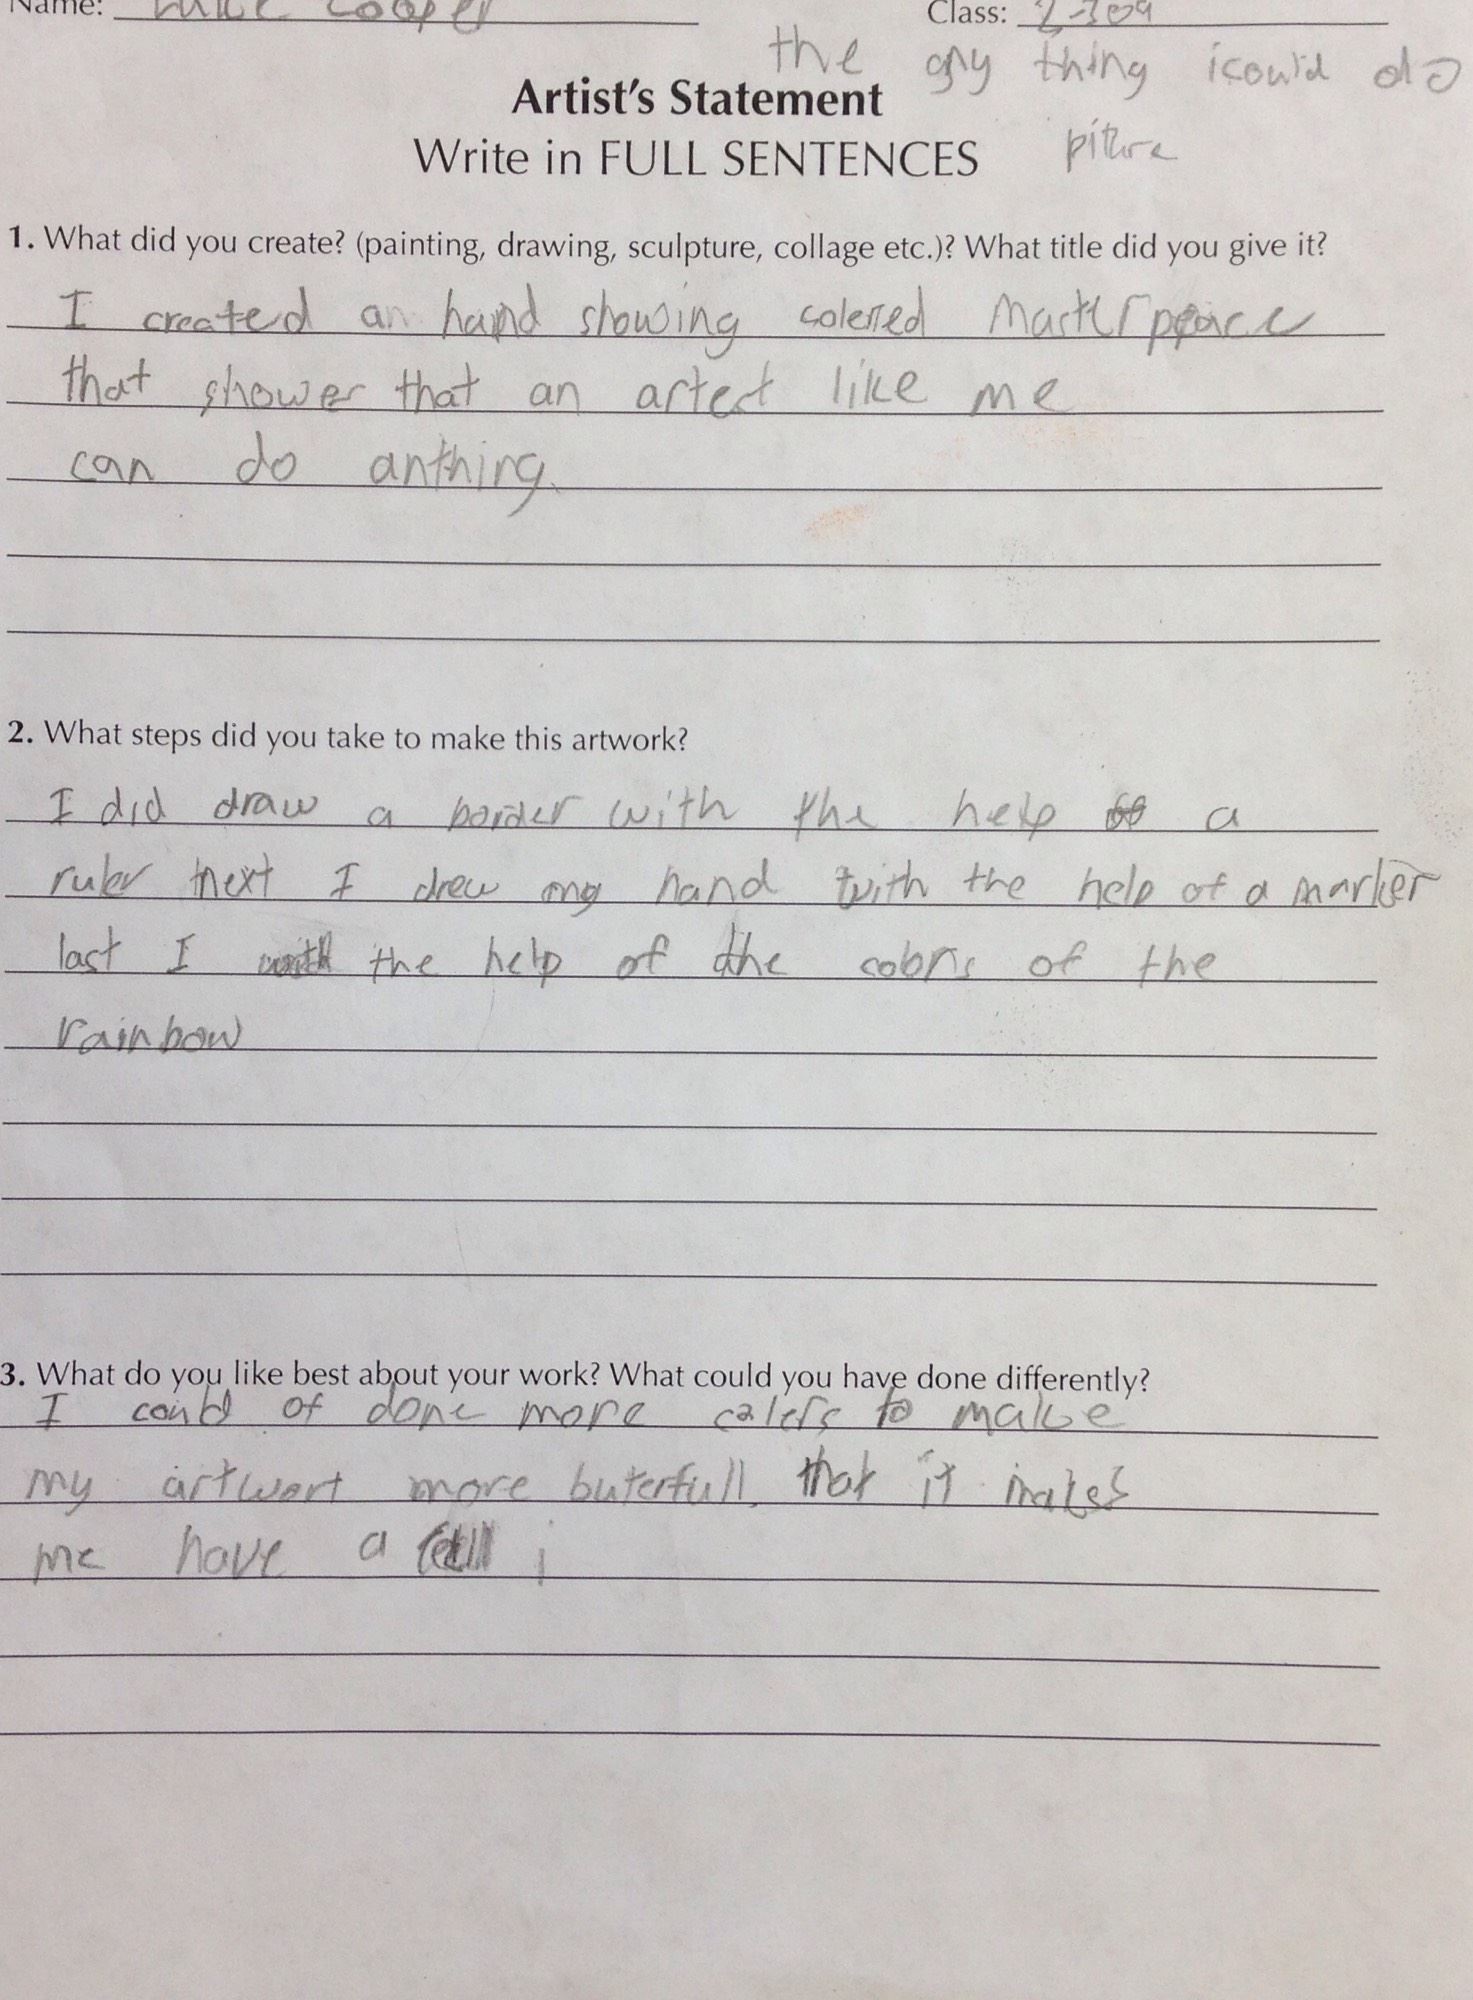 Name: Luke Cooper Class: 2-309
the any thing icould do
Artist's Statement
Write in FULL SENTENCES
piture
1. What did you create? (painting, drawing, sculpture, collage etc.)? What title did you give it?
I created an hand showing colered Masterpeace
that shower that an artest like me
can do anthing.
2. What steps did you take to make this artwork?
I did draw a border with the help a
ruler next I drew my hand with the help of a marker
last I with the help of the colors of the
rainbow
3. What do you like best about your work? What could you have done differently?
I could of done more calers to make
my artwort more buterfull. that it makes
me have a